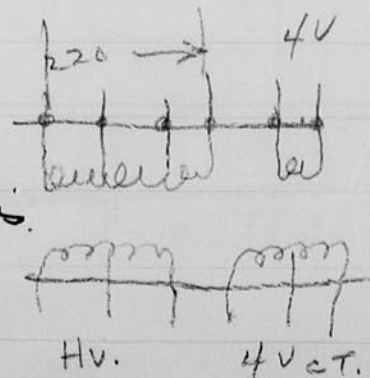 220 4V
HV. 4V CT.